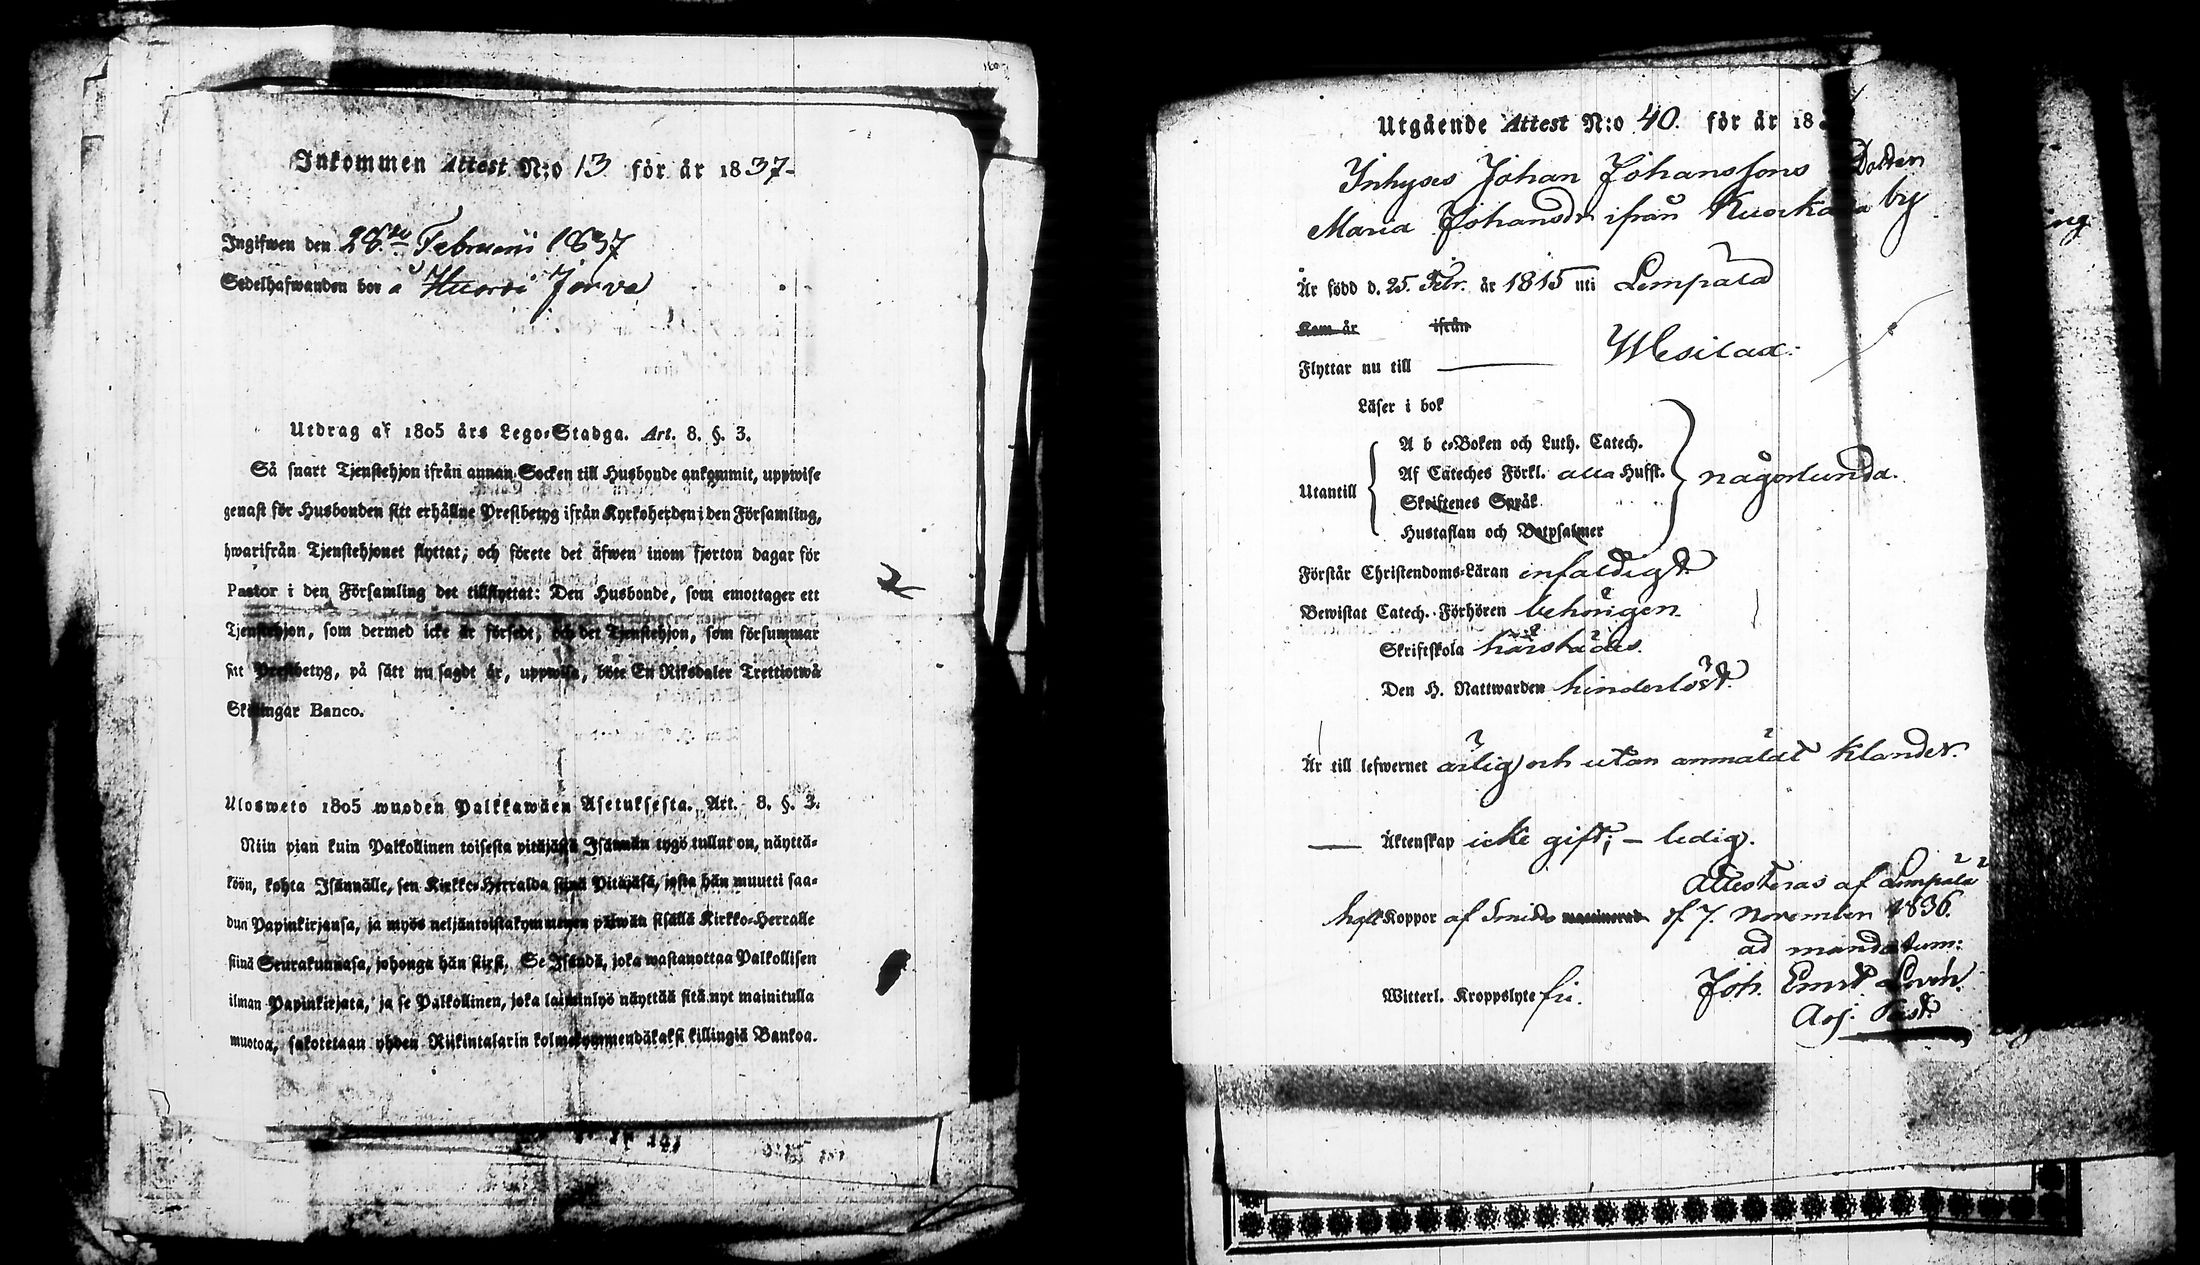 Inkommen Attest N:o 13 för år 1837.
Ingifwen den 28:de Februarii 1837
Sedelhafwanden bor å Huorsi Jorva
Utdrag af 1805 års Lego-Stadga. Art. 8. §. 3.
Så snart Tjenstehjon ifrån annan Socken till Husbonde ankommit, uppwise
genast för Husbonden sitt erhållne Prestbetyg ifrån Kyrkoherden i den Församling,
hwarifrån Tjenstehjonet flyttat, och förete det äfwen inom fjorton dagar för
Pastor i den Församling det tillflyttat: Den Husbonde, som emottager ett
Tjenstehjon, som dermed icke är försedt, och det Tjenstehjon, som försummar
sitt Prestbetyg, på sätt nu sagdt är, uppwisa, böte En Riksdaler Trettiotwå
Skillingar Banco.
Ulosweto 1805 wuoden Palkkawäen Asetuksesta. Art. 8. §. 3.
Niin pian kuin Palkollinen toisesta pitäjästä Isännän tygö tullut on, näyttä-
köön, kohta Isännälle, sen Kirkko-Herralda siinä Pitäjäsä, josta hän muutti saa-
dun Papinkirjansa, ja myös neljäntoistakymmenen päiwän sisällä Kirkko-Herralle
siinä Seurakunnasa, johonga hän siirsi. Se Isändä, joka wastanottaa Palkollisen
ilman Papinkirjata, ja se Palkollinen, joka laiminlyö näyttää sitä nyt mainitulla
muotoa, sakotetaan yhden Riikintalarin kolmekymmendäkaksi killingiä Bankoa.
Utgående Attest N:o 40. för år 18
Inhyses Johan Johanssons Dotter
Maria Johansdr ifrån Kuorkala by
Är född d. 25. Febr. år 1815 uti Lempälä
Kom år ifrån
Flyttar nu till Wesilax.
Läser i bok
A b c-Boken och Luth. Catech.
Af Cateches Förkl. alla Husst.
Utantill någorlunda.
Skriftenes Språk
Hustaflan och Botpsalmer
Förstår Christendoms-Läran enfaldigt.
Bewistat Catech. Förhören behörigen
Skriftskola härstädes.
Den H. Nattwarden hinderlöst.
Är till lefwernet ärlig och utan anmäldt klander.
Äktenskap icke gift; – ledig.
Attesteras af Lempälä
haft Koppor af Smidts vaccinerad d 7. November 1836.
ad mandatum:
Witterl. Kroppslyte fri. Joh. Ernst Lovén
Adj. Past.